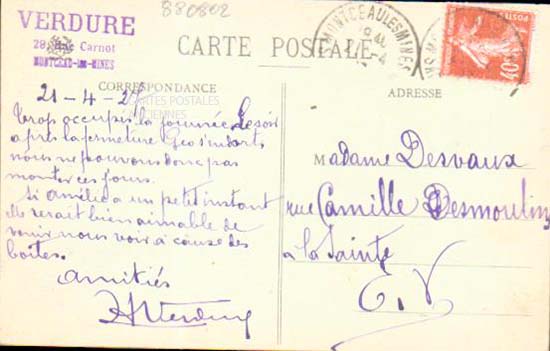 880802
VERDURE
28, Rue Carnot
MONTCEAU-les-MINES
CARTE POSTALE
MONTCEAU LES MINES
POSTES
40c
CORRESPONDANCE
CARTES POSTALES
ANCIENNES
21-4-2
Trop occupés la journée Le soir
après la fermeture
nous ne pouvons donc pas
monter ces jours.
Si Amélie a un petit instant
elle serait bien aimable de
venir nous voir à cause des
boîtes.
Amitiés
Verdure
ADRESSE
Madame Desvaux
rue Camille Desmoulin
à la Sainte
E.V